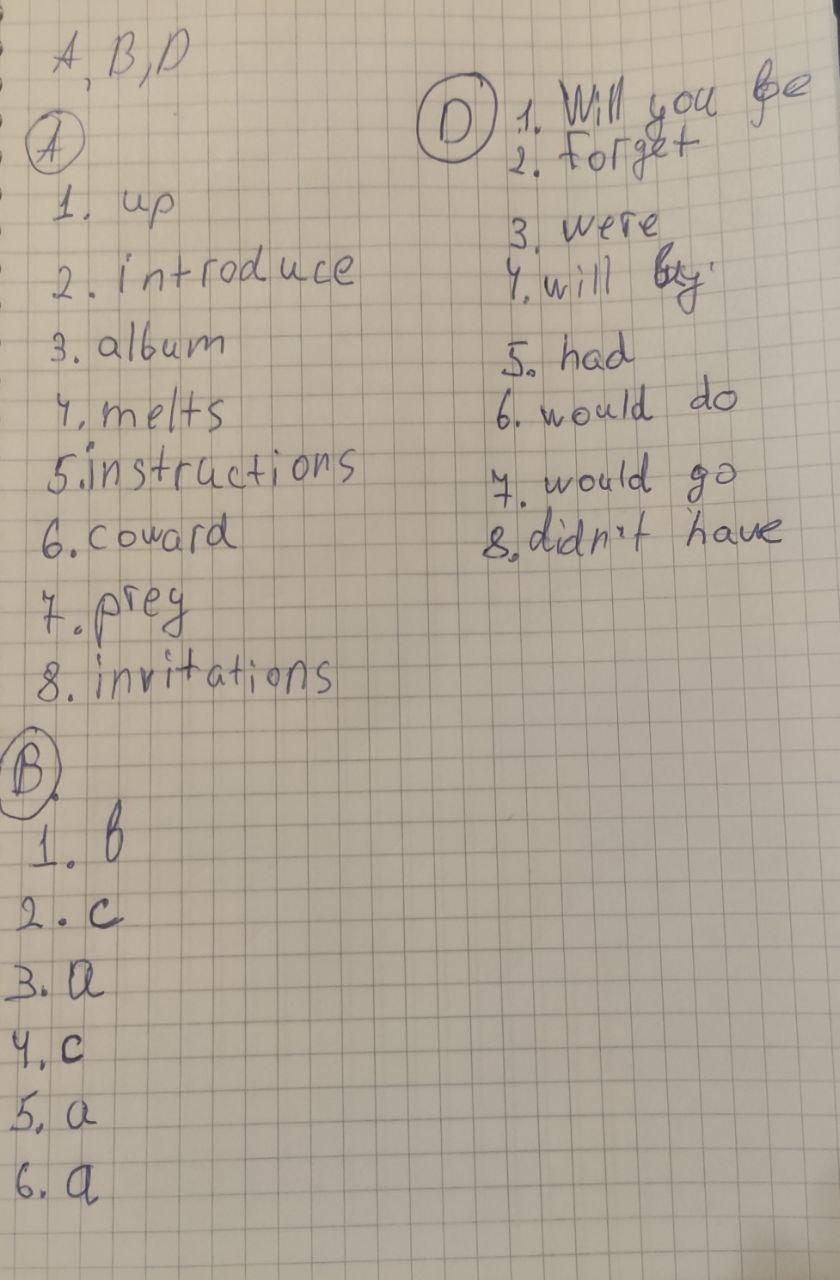 A, B, D
A
1. up
2. introduce
3. album
4. melts
5. instructions
6. coward
7. prey
8. invitations
B.
1. b
2. c
3. a
4. c
5. a
6. a
D
1. Will you be
2. forget
3. were
4. will buy
5. had
6. would do
7. would go
8. didn't have